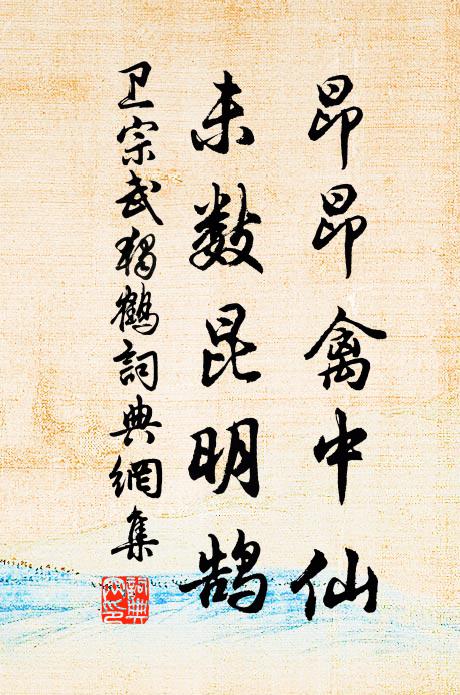 昂昂禽中仙
未数昆明鹄
卫宗武独鹤詞典網集